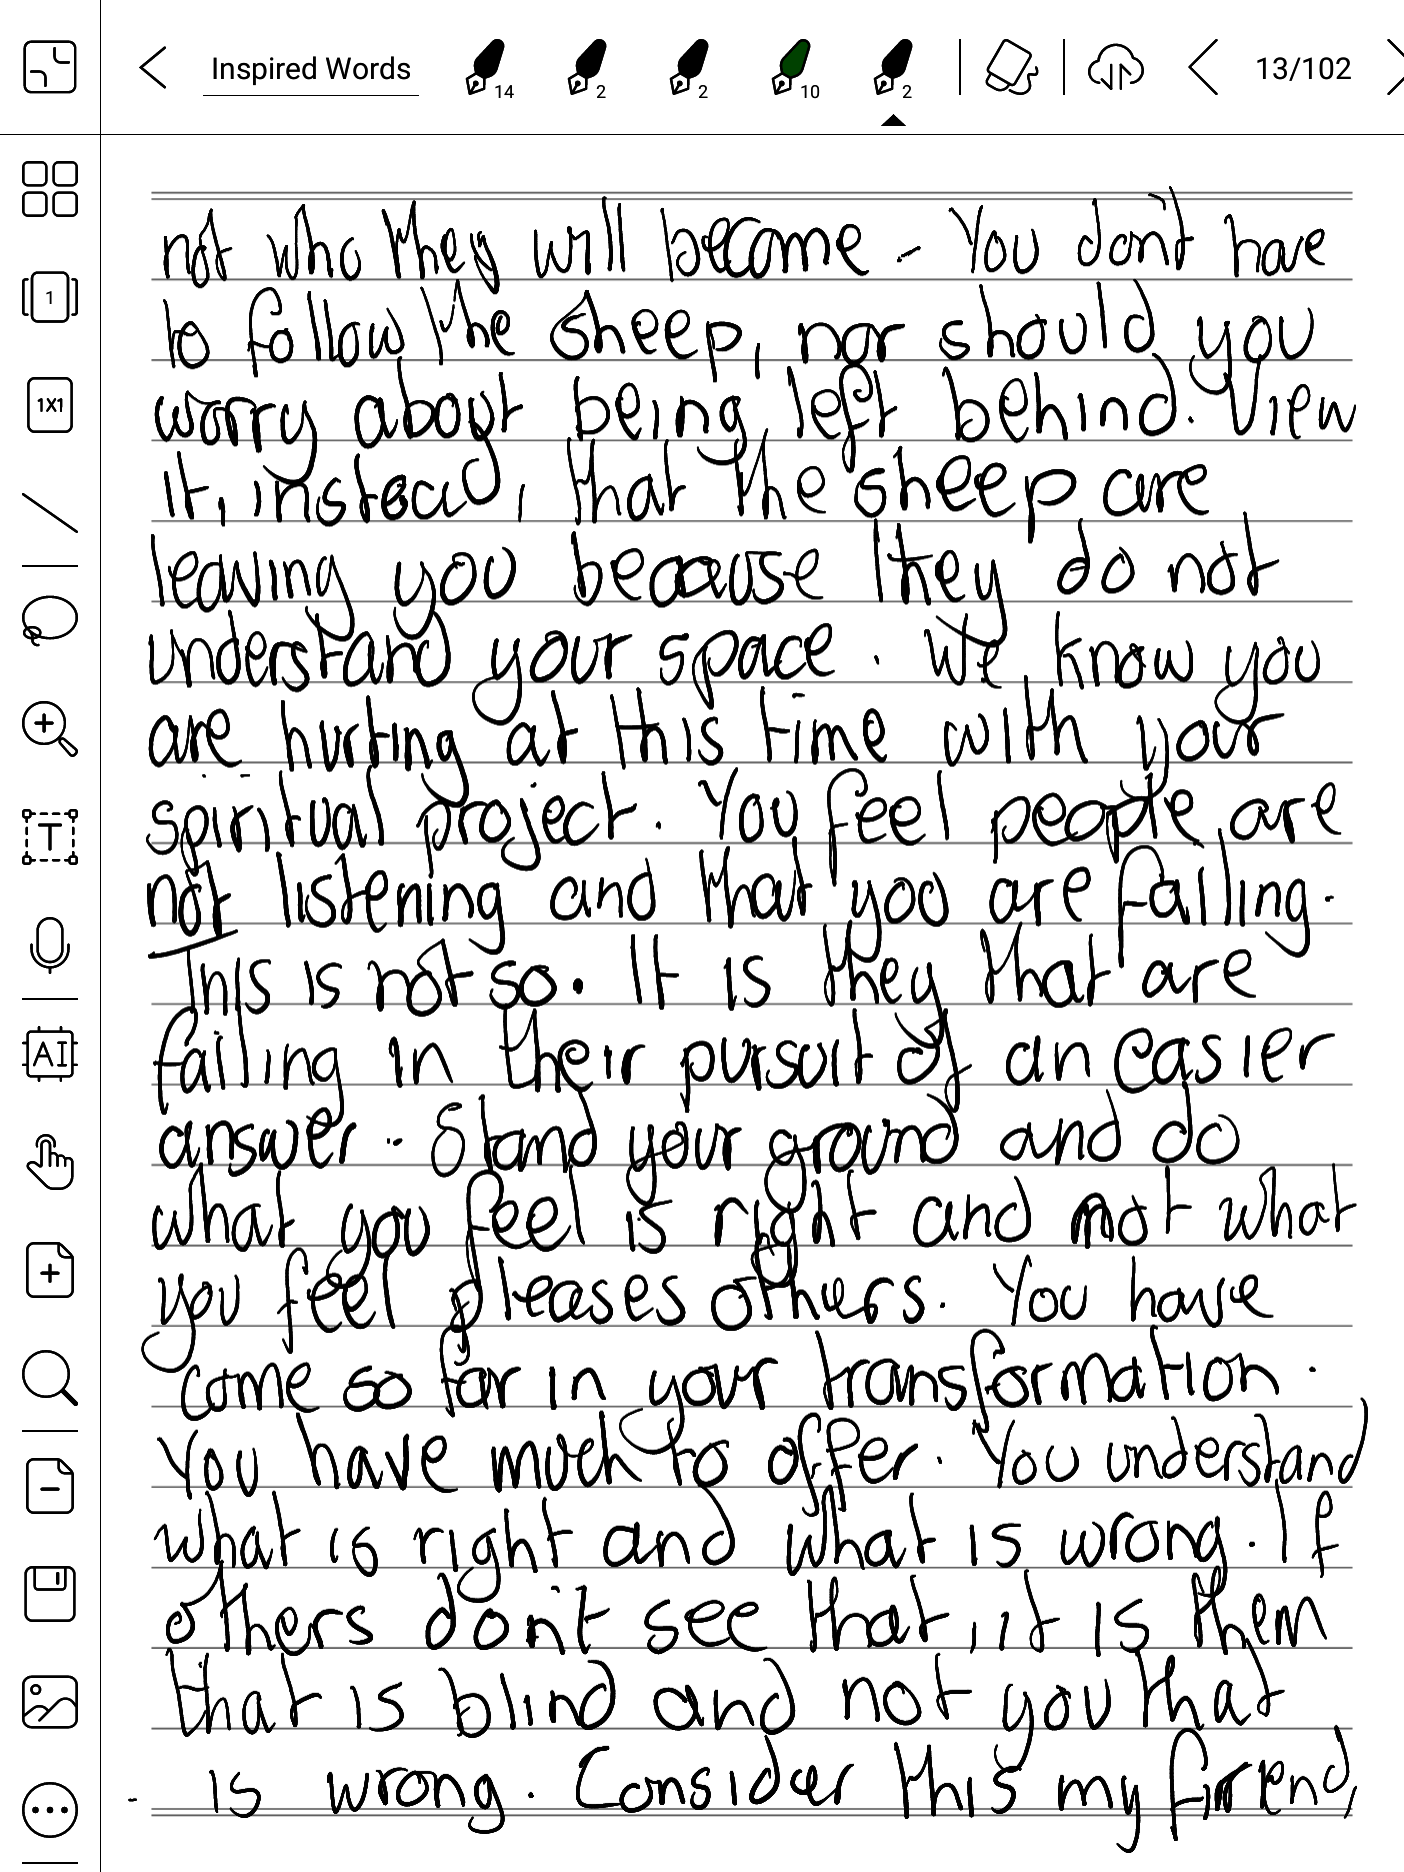 Inspired Words
14
2
2
10
2
13/102
1
1X1
T
AI
not who they will become - You don't have
to follow the sheep, nor should you
worry about being left behind. View
it, instead, that the sheep are
leaving you because they do not
understand your space. We know you
are hurting at this time with your
spiritual project. You feel people are
not listening and that you are failing.
This is not so. It is they that are
failing in their pursuit of an easier
answer. Stand your ground and do
what you feel is right and not what
you feel pleases others. You have
come so far in your transformation.
You have much to offer. You understand
what is right and what is wrong. If
others don't see that, it is them
that is blind and not you that
is wrong. Consider this my friend,